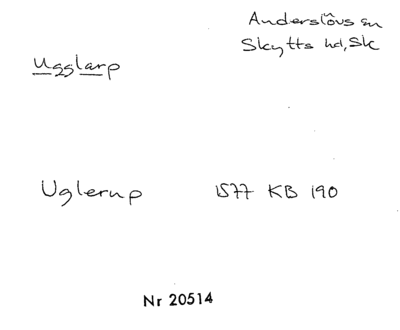 Anderslövs sn
Skytts hd, Sk
Ugglarp
Uglerup 1577 KB 190
Nr 20514